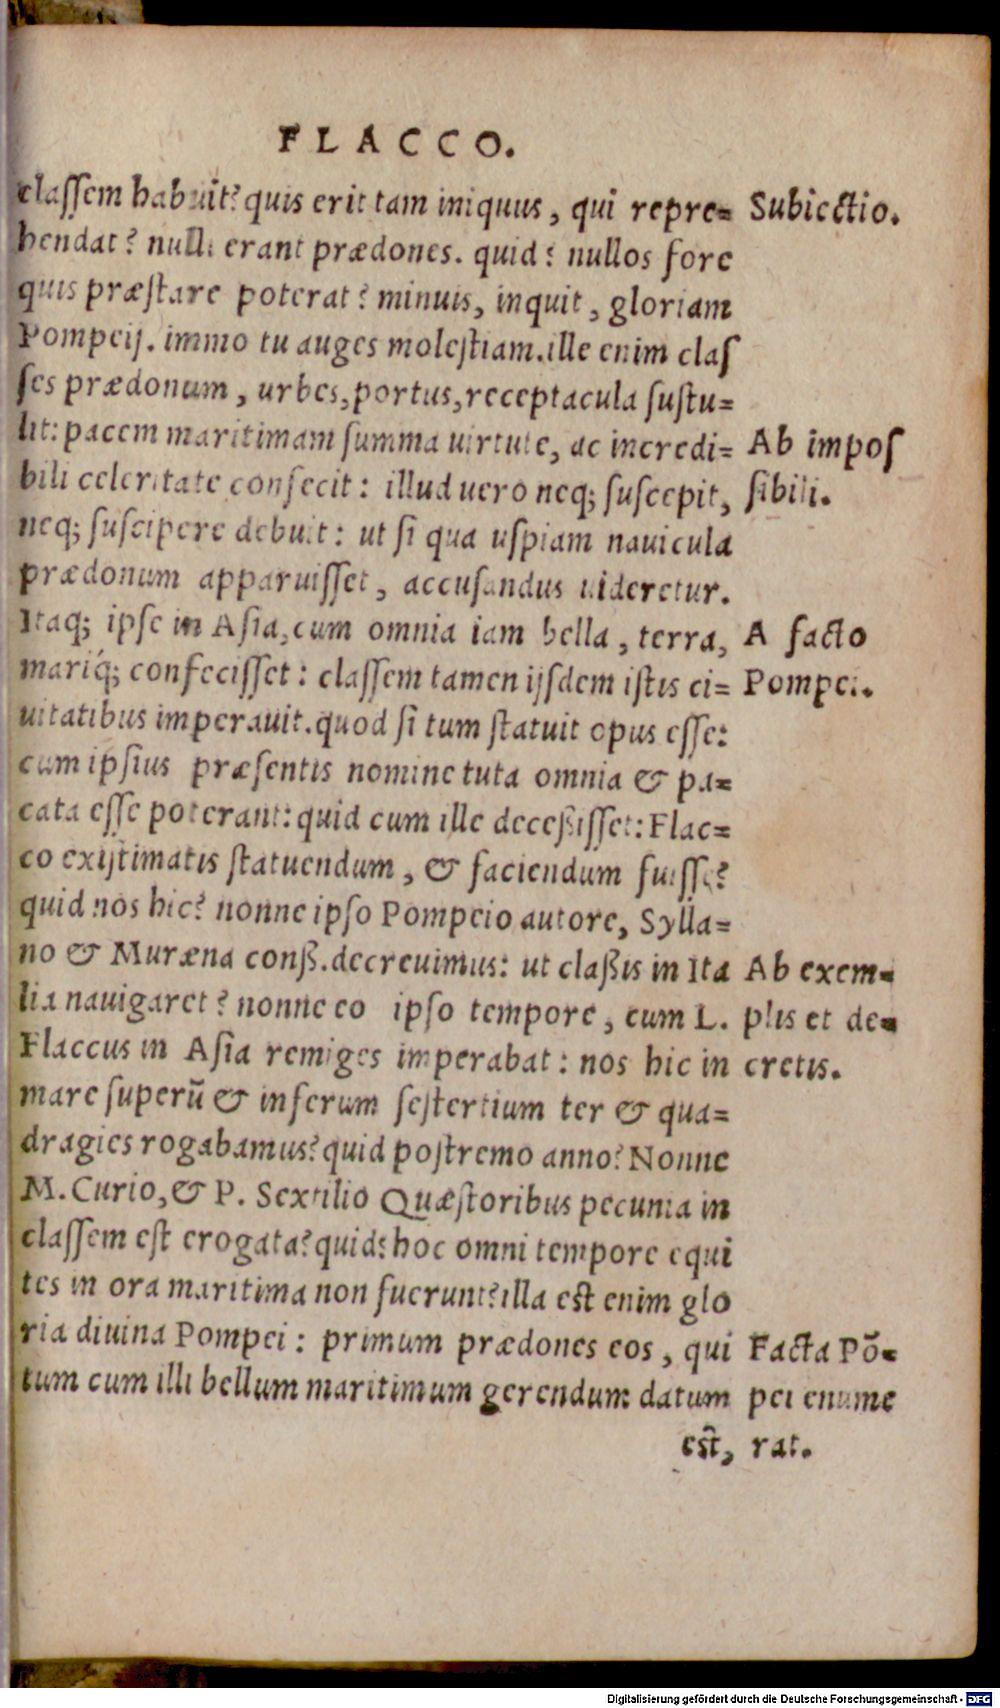 FLACCO.
claſſem habuit? quis erit tam iniquus, qui repre=
hendat? nulli erant prædones. quid? nullos fore
quis præſtare poterat? minuis, inquit, gloriam
Pompeij. immo tu auges moleſtiam. ille enim claſ
ſes prædonum, urbes, portus, receptacula ſuſtu=
lit: pacem maritimam ſumma uirtute, ac incredi=
bili celeritate confecit: illud uero neq; ſuſcepit,
neq; ſuſcipere debuit: ut ſi qua uſpiam nauicula
prædonum apparuiſſet, accuſandus uideretur.
Itaq; ipſe in Aſia, cum omnia iam bella, terra,
mariq́; confeciſſet: claſſem tamen ijſdem iſtis ci=
uitatibus imperauit. quod ſi tum ſtatuit opus eſſe:
cum ipſius præſentis nomine tuta omnia & pa=
cata eſſe poterant: quid cum ille deceßiſſet: Flac=
co exiſtimatis ſtatuendum, & faciendum fuiſſe?
quid nos hic? nonne ipſo Pompeio autore, Sylla=
no & Muræna conß. decreuimus: ut claßis in Ita
lia nauigaret? nonne eo ipſo tempore, cum L.
Flaccus in Aſia remiges imperabat: nos hic in
mare ſuperũ & inferum ſeſtertium ter & qua=
dragies rogabamus? quid poſtremo anno? Nonne
M. Curio, & P. Sextilio Quæſtoribus pecunia in
claſſem eſt erogata? quid? hoc omni tempore equi
tes in ora maritima non fuerunt? illa eſt enim glo
ria diuina Pompei: primum prædones eos, qui
tum cum illi bellum maritimum gerendum datum
eſt,
Subiectio.
Ab impoſ
ſibili.
A facto
Pompei.
Ab exem=
plis et de=
cretis.
Facta Põ=
pei enume
rat.
Digitalisierung gefördert durch die Deutsche Forschungsgemeinschaft - DFG